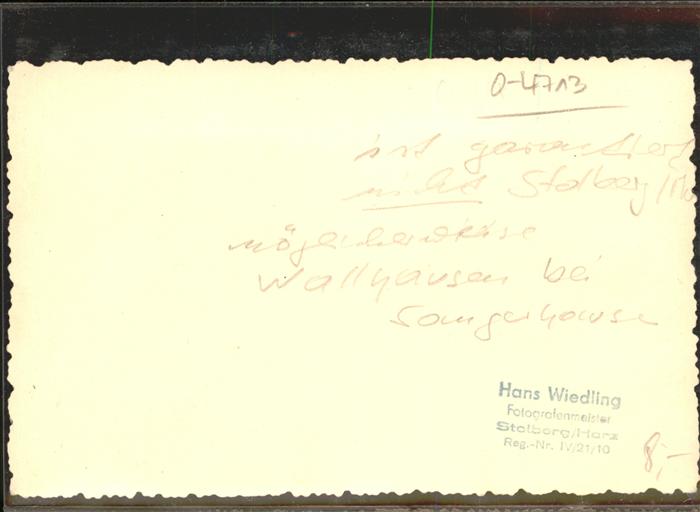 O-4713
ist garantiert
nicht Stolberg/Ha
möglicherweise
Wallhausen bei
Sangerhausen
Hans Wiedling
Fotografenmeister
Stolberg/Harz
Reg.-Nr. IV/21/10
8,-